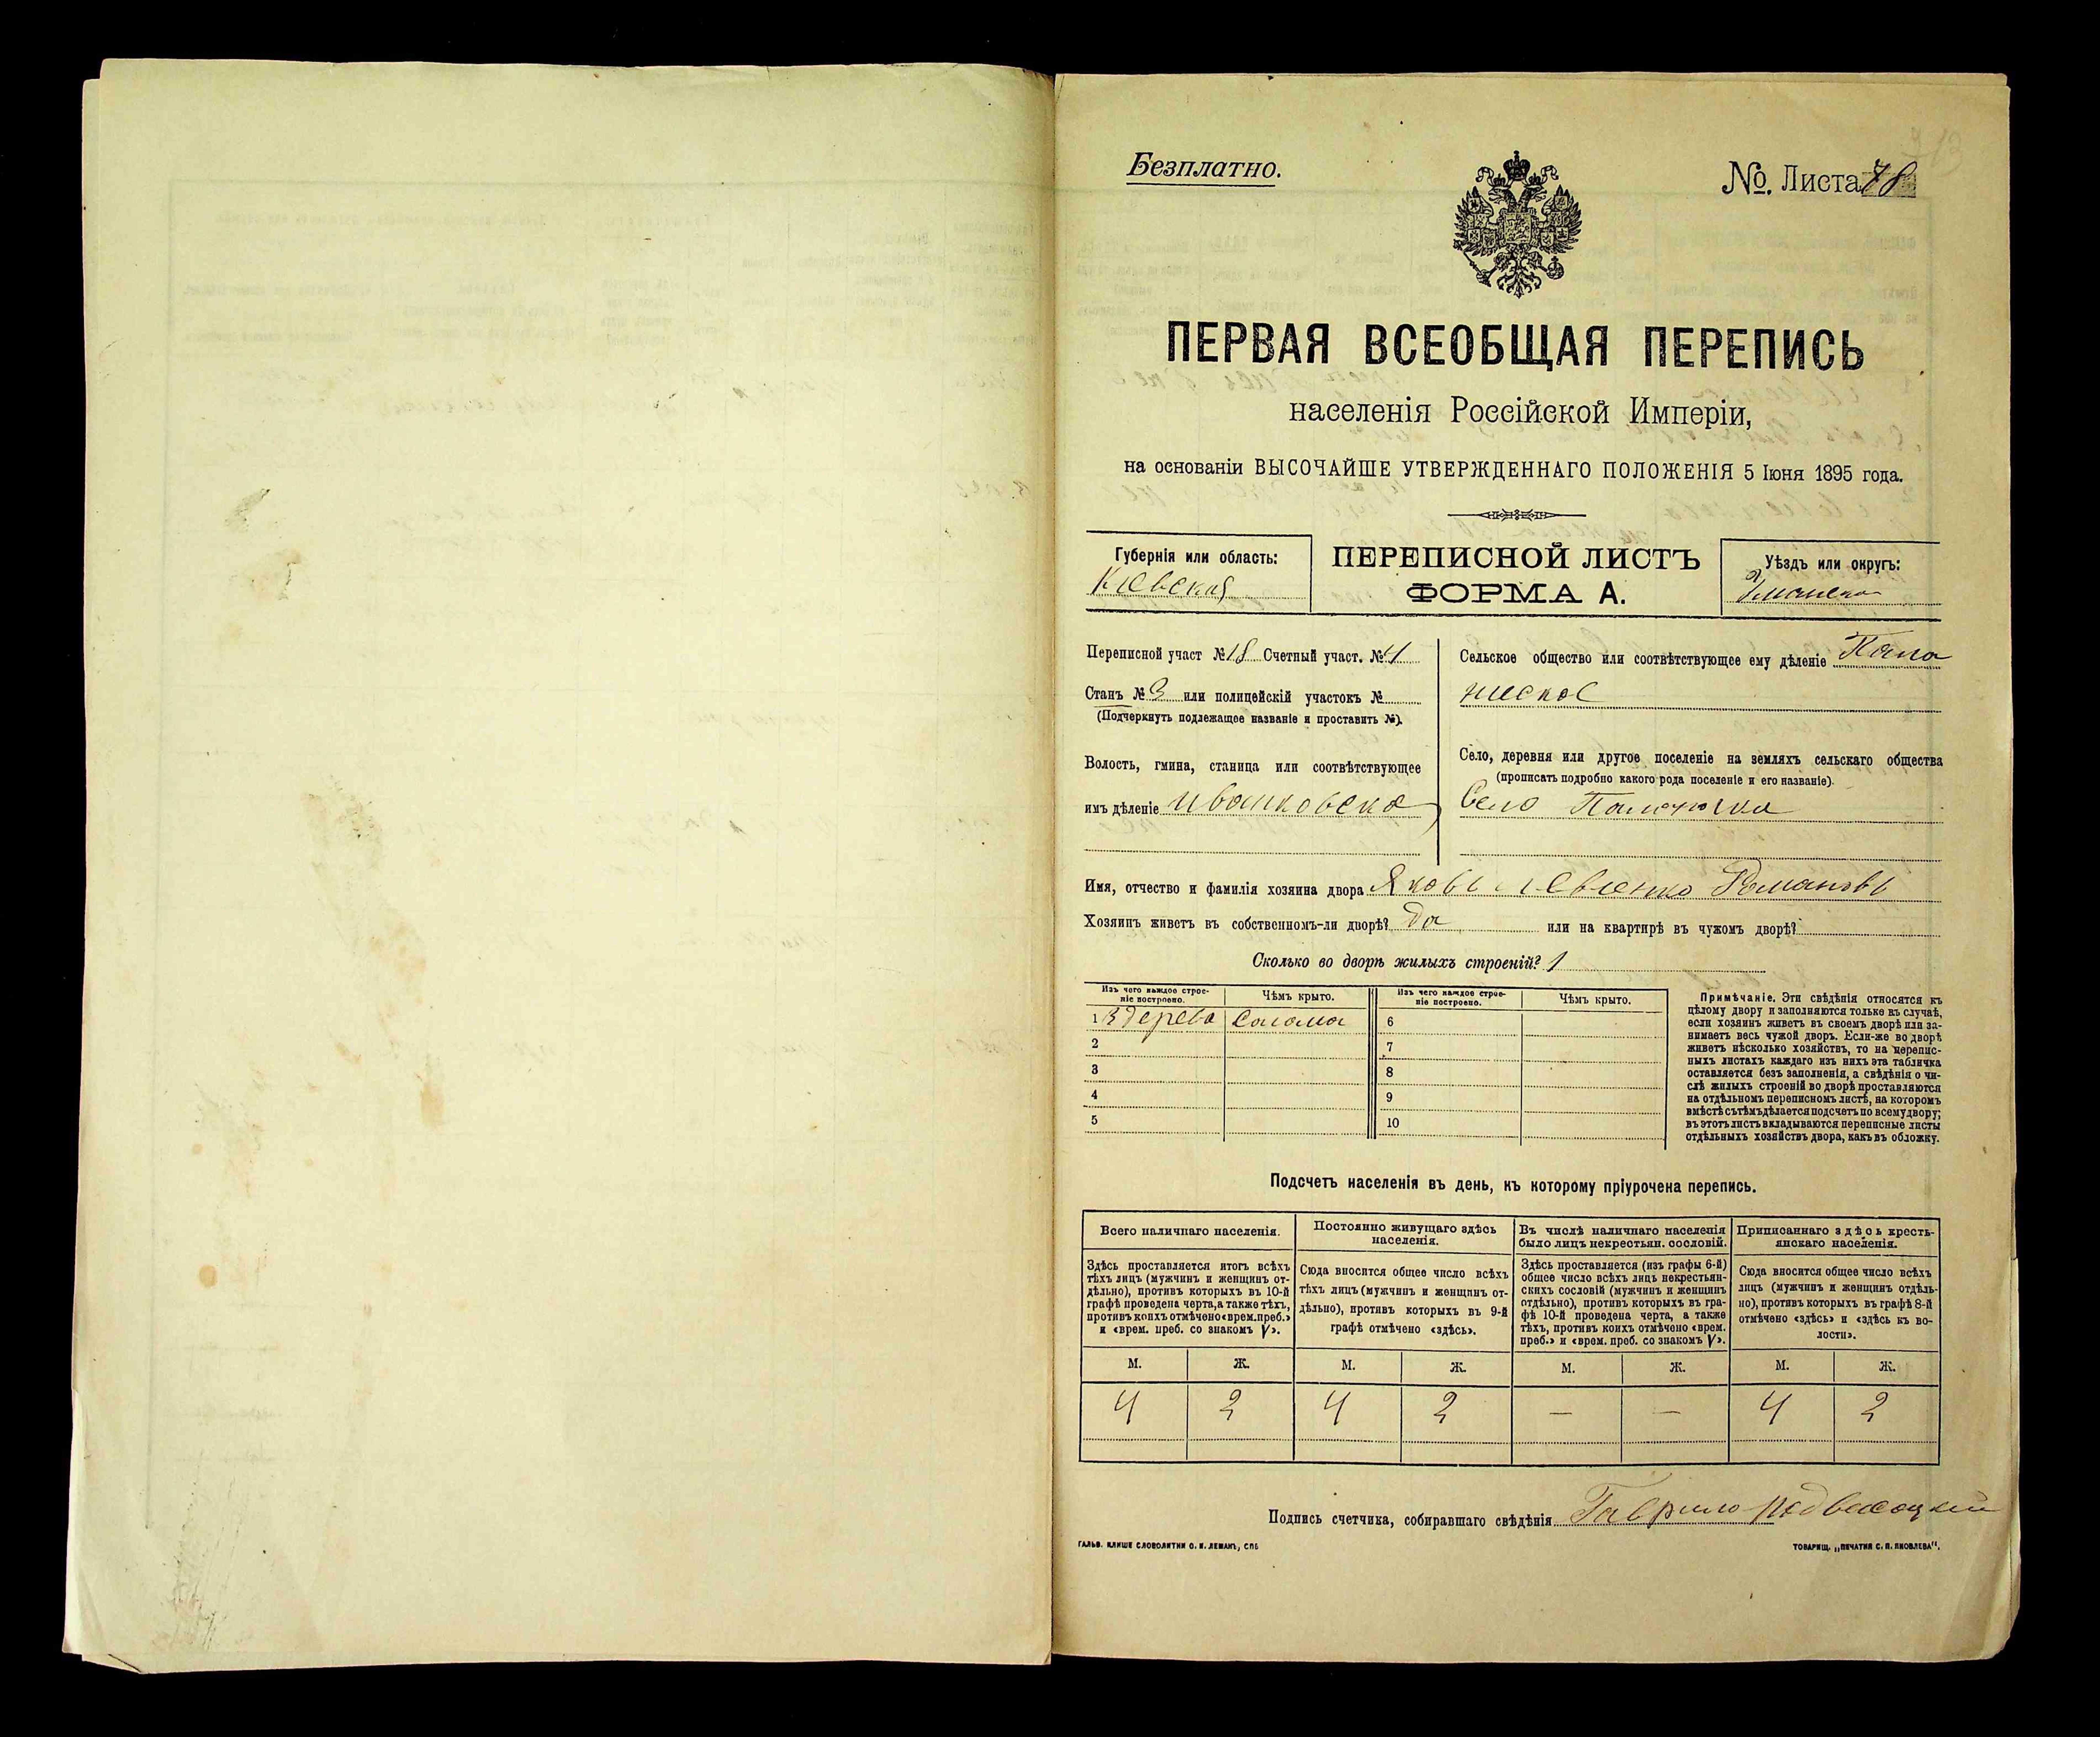 Безплатно.
№. Листа 78
ПЕРВАЯ ВСЕОБЩАЯ ПЕРЕПИСЬ
населенія Россійской Имперіи,
на основаніи ВЫСОЧАЙШЕ УТВЕРЖДЕННАГО ПОЛОЖЕНІЯ 5 Іюня 1895 года.
Губернія или область:
Кіевская
ПЕРЕПИСНОЙ ЛИСТЪ
ФОРМА А.
Уѣздъ или округъ:
Уманско
Переписной участ № 18 Счетный участ. № 4
Станъ № 3 или полицейскій участокъ №
(Подчеркнуть подлежащее названіе и проставить №).
Волость, гмина, станица или соотвѣтствующее
имъ дѣленіе Ивоньковска
Сельское общество или соотвѣтствующее ему дѣленіе
Село, деревня или другое поселеніе на земляхъ сельскаго общества
(прописать подробно какого рода поселеніе и его названіе).
Село
Имя, отчество и фамилія хозяина двора Яковъ Левченко Романовъ
Хозяинъ живетъ въ собственномъ-ли дворѣ? да или на квартирѣ въ чужомъ дворѣ?
Сколько во дворѣ жилыхъ строеній? 1
Изъ чего каждое строе-
ніе построено.
Чѣмъ крыто.
Изъ чего каждое строе-
ніе построено.
Чѣмъ крыто.
1 з дерева солома 6
2 7
3 8
4 9
5 10
Примѣчаніе. Эти свѣдѣнія относятся къ
цѣлому двору и заполняются только въ случаѣ,
если хозяинъ живетъ въ своемъ дворѣ или за-
нимаетъ весь чужой дворъ. Если-же во дворѣ
живетъ нѣсколько хозяйствъ, то на перепис-
ныхъ листахъ каждаго изъ нихъ эта табличка
оставляется безъ заполненія, а свѣдѣнія о чи-
слѣ жилыхъ строеній во дворѣ проставляются
на отдѣльномъ переписномъ листѣ, на которомъ
вмѣстѣ съ тѣмъ дѣлается подсчетъ по всему двору;
въ этотъ листъ вкладываются переписные листы
отдѣльныхъ хозяйствъ двора, какъ въ обложку.
Подсчетъ населенія въ день, къ которому пріурочена перепись.
Всего наличнаго населенія.
Здѣсь проставляется итогъ всѣхъ
тѣхъ лицъ (мужчинъ и женщинъ от-
дѣльно), противъ которыхъ въ 10-й
графѣ проведена черта, а также тѣхъ,
противъ коихъ отмѣчено «врем. преб.»
и «врем. преб. со знакомъ V».
Постоянно живущаго здѣсь
населенія.
Сюда вносится общее число всѣхъ
тѣхъ лицъ (мужчинъ и женщинъ от-
дѣльно), противъ которыхъ въ 9-й
графѣ отмѣчено «здѣсь».
Въ числѣ наличнаго населенія
было лицъ некрестьян. сословій.
Здѣсь проставляется (изъ графы 6-й)
общее число всѣхъ лицъ некрестьян-
скихъ сословій (мужчинъ и женщинъ
отдѣльно), противъ которыхъ въ гра-
фѣ 10-й проведена черта, а также
тѣхъ, противъ коихъ отмѣчено «врем.
преб.» и «врем. преб. со знакомъ V».
Приписаннаго здѣсь кресть-
янскаго населенія.
Сюда вносится общее число всѣхъ
лицъ (мужчинъ и женщинъ отдѣль-
но), противъ которыхъ въ графѣ 8-й
отмѣчено «здѣсь» и «здѣсь къ во-
лости».
М. Ж. М. Ж. М. Ж. М. Ж.
4 2 4 2 — — 4 2
Подпись счетчика, собиравшаго свѣдѣнія Гаврило Подвысоцкий
ГАЛЬВ. КЛИШЕ СЛОВОЛИТНИ О. И. ЛЕМАНЪ, СПБ
ТОВАРИЩ. „ПЕЧАТНЯ С. П. ЯКОВЛЕВА".